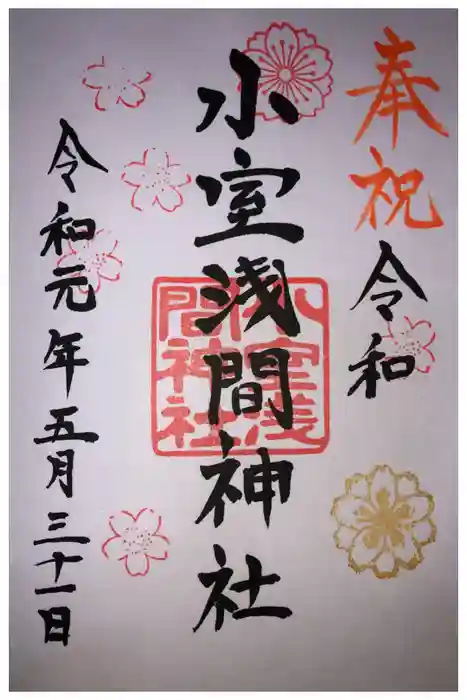 奉祝令和
小室浅間神社
小室浅間神社
令和元年五月三十一日